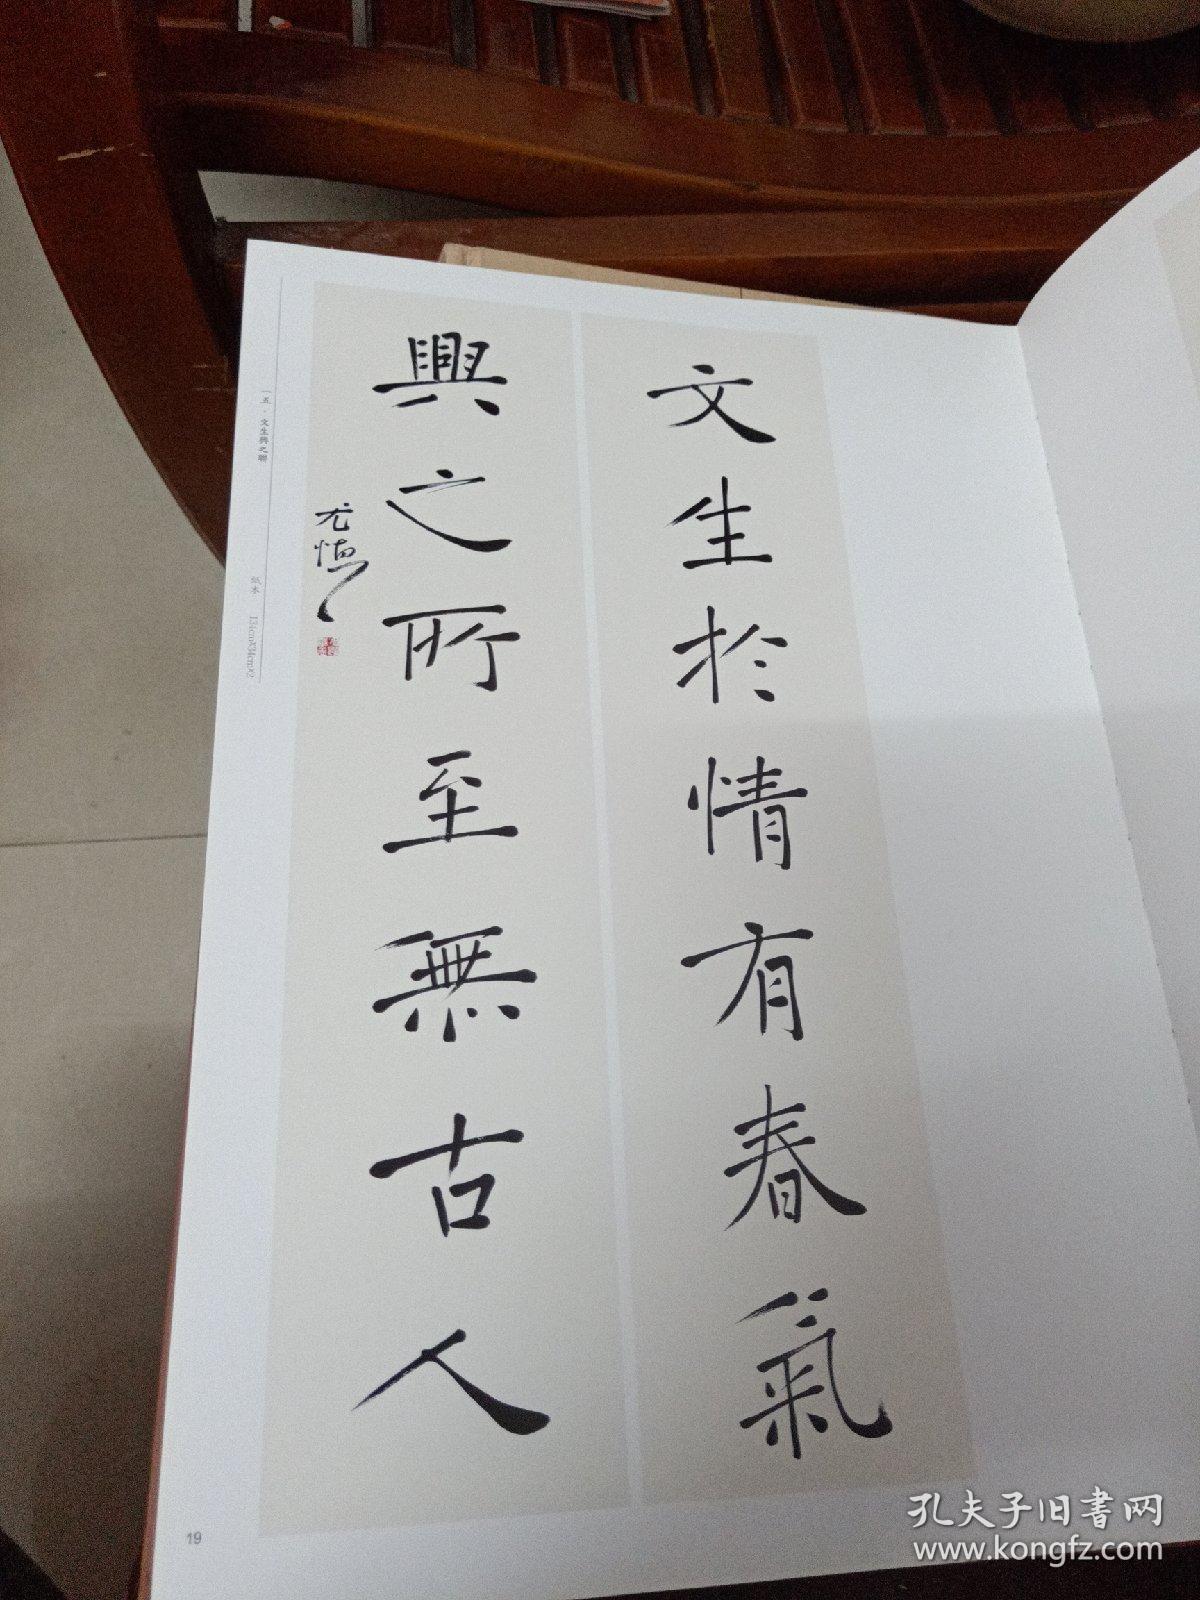 文生於情有春氣
興之所至無古人
尤慎
一五·文生興之聯 紙本 134cm×34cm×2
19
孔夫子旧書网
www.kongfz.com